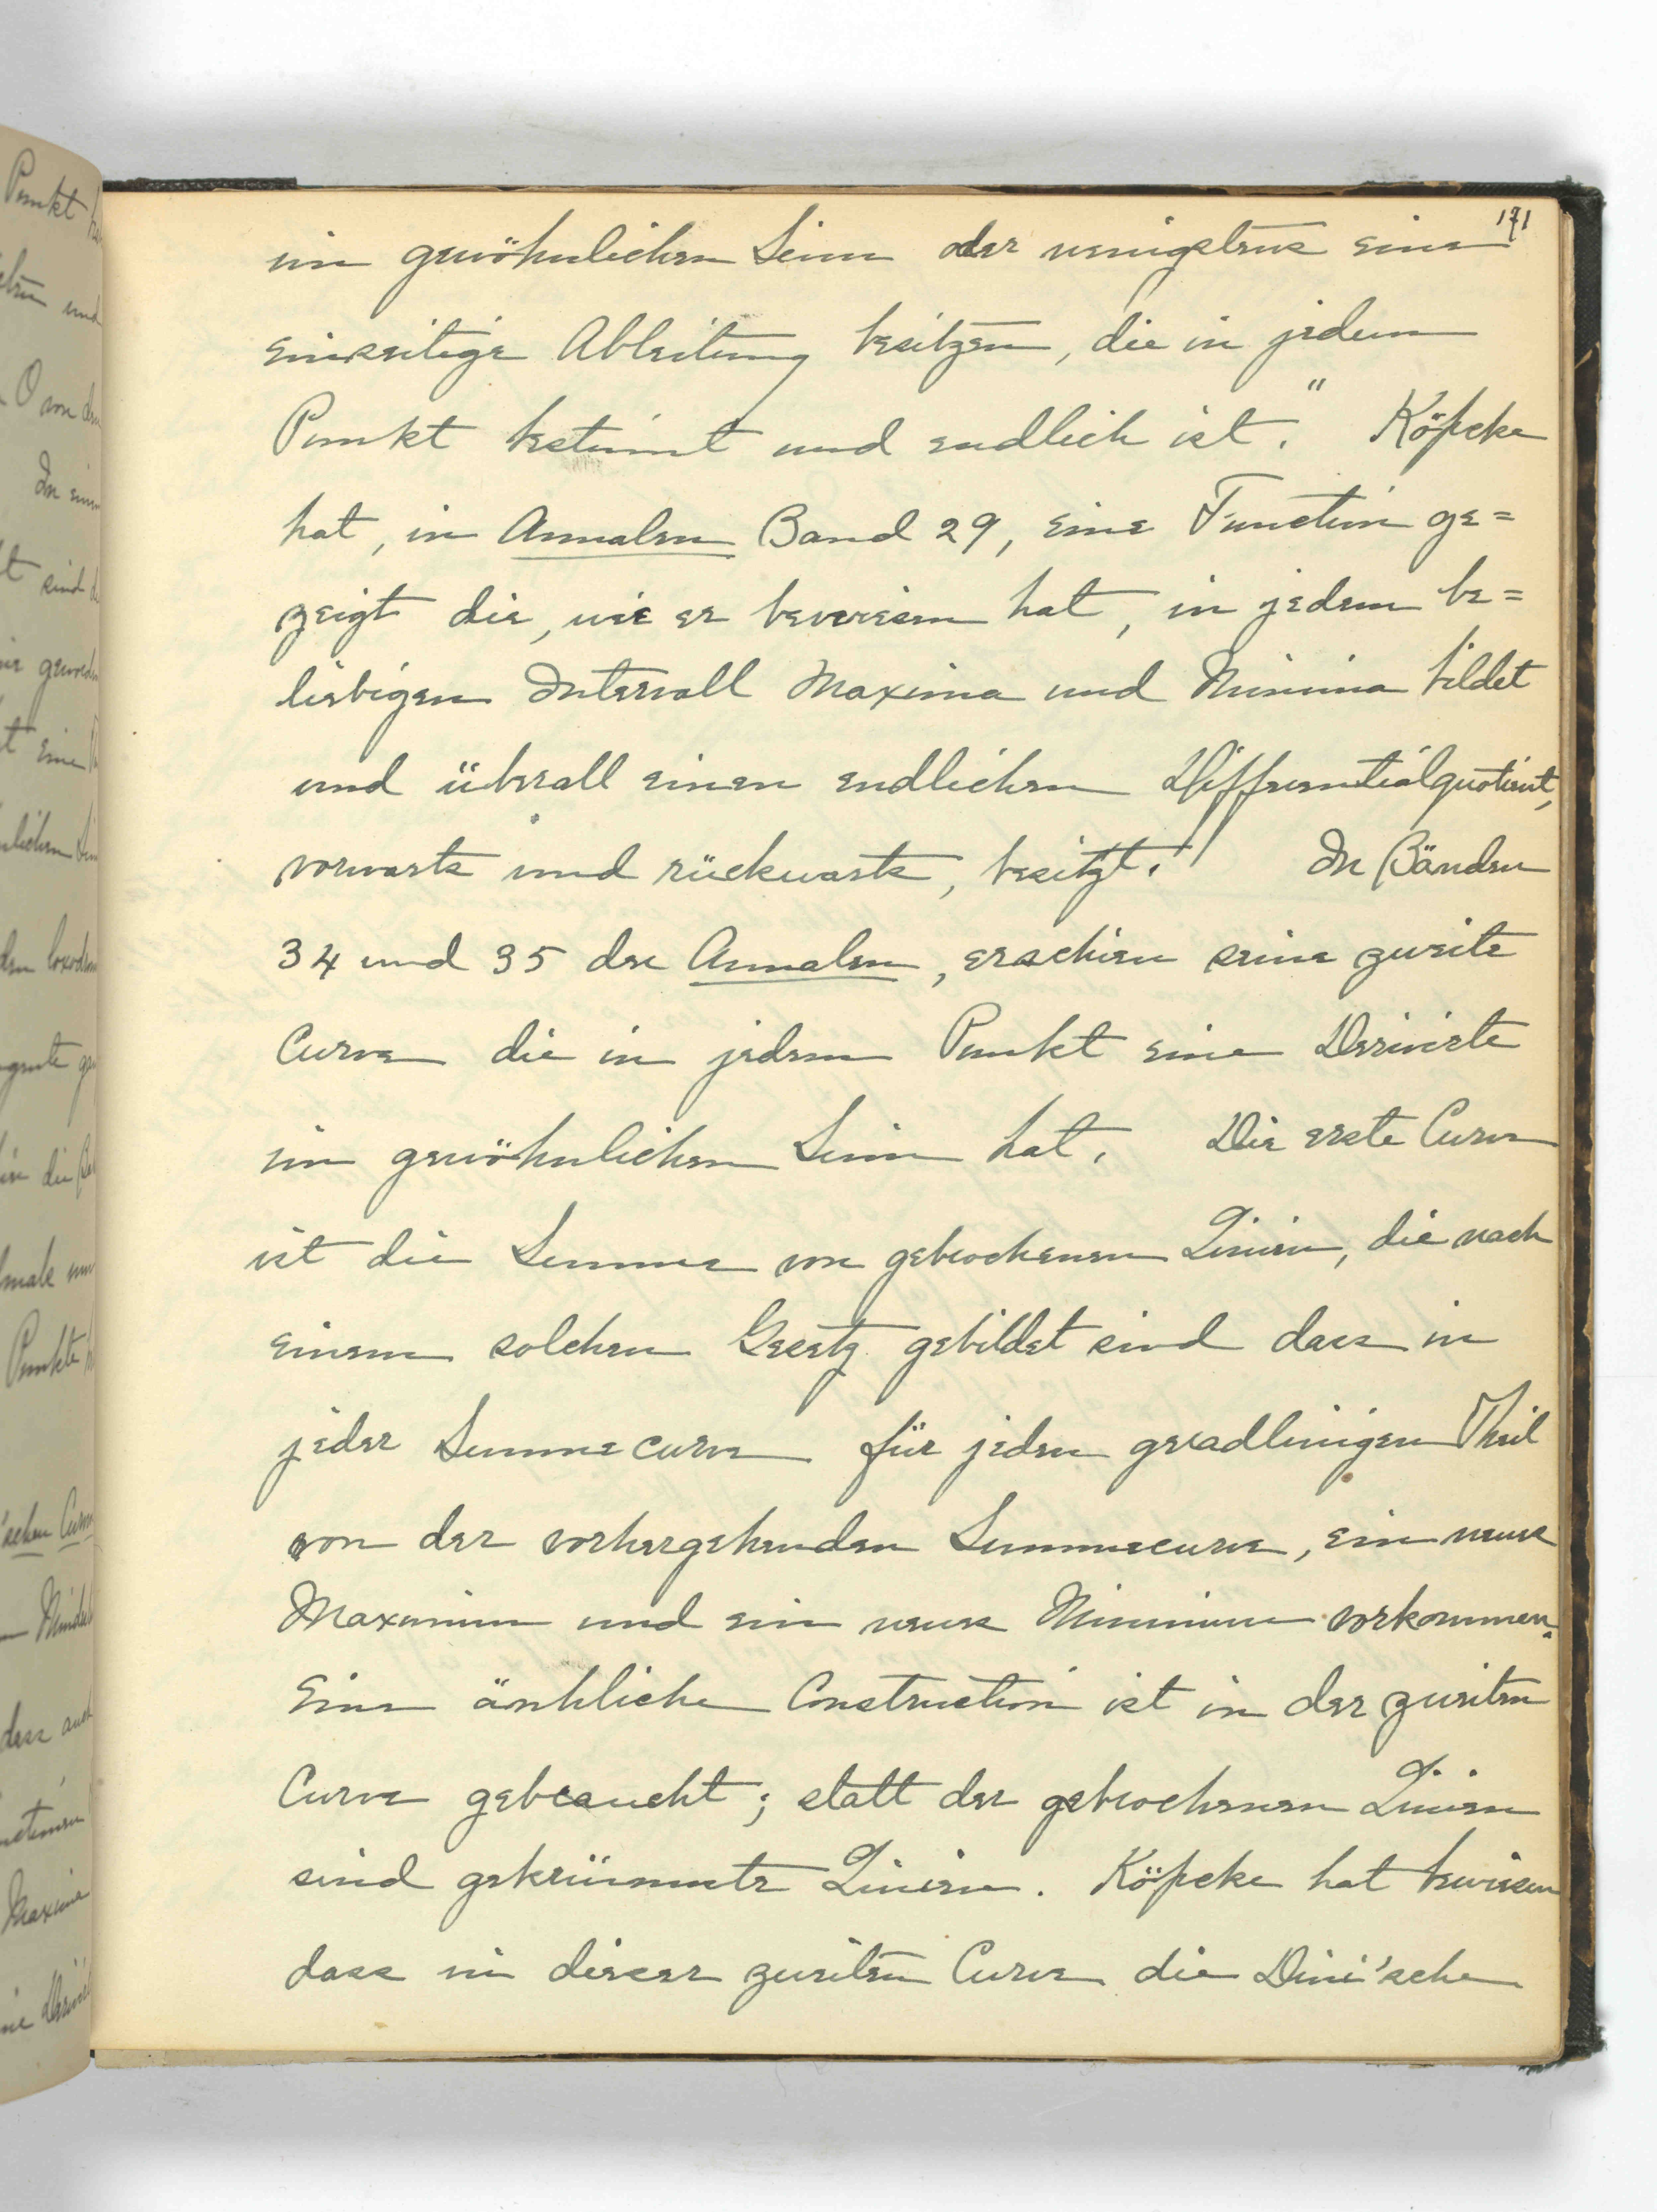 171
im gewöhnlichen Sinn oder wenigstens eine
einseitige Ableitung besitzen, die in jedem
Punkt bestimmt und endlich ist." Köpcke
hat, in Annalen Band 29, eine Function ge=
zeigt die, wie er bewiesen hat, in jedem be=
liebigen Intervall Maxima und Minima bildet
und überall einen endlichen Differentialquotient,
vorwarts und rückwarts, besitzt. In Bänden
34 und 35 der Annalen, erschien seine zweite
Curve die in jedem Punkt eine Derivirte
im gewöhnlichen Sinn hat. Die erste Curve
ist die Summe von gebrochenen Linien, die nach
einem solchen Gesetz gebildet sind dass in
jeder Summecurve für jeden geradlinigen Theil
von der vorhergehenden Summecurve, ein neues
Maximum und ein neues Minimum vorkommen.
Eine änhliche Construction ist in der zweiten
Curve gebraucht; statt der gebrochenen Linien
sind gekrümmte Linien. Köpcke hat bewiesen
dass in dieser zweiten Curve die Dini'sche
Punkt
und
O von
In
sind
eine
Curve
Punkte
dass auch
Maxima